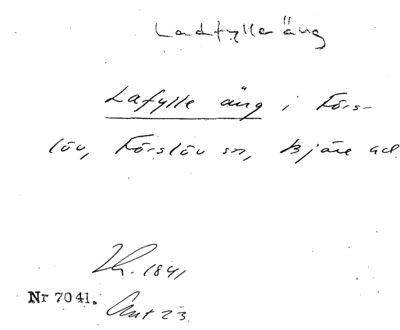 Ladfylleäng
Lafylle äng i Förs-
löv, Förslöv sn, Bjäre hd
Lh. 1841
Nr 7041.
Ant 23